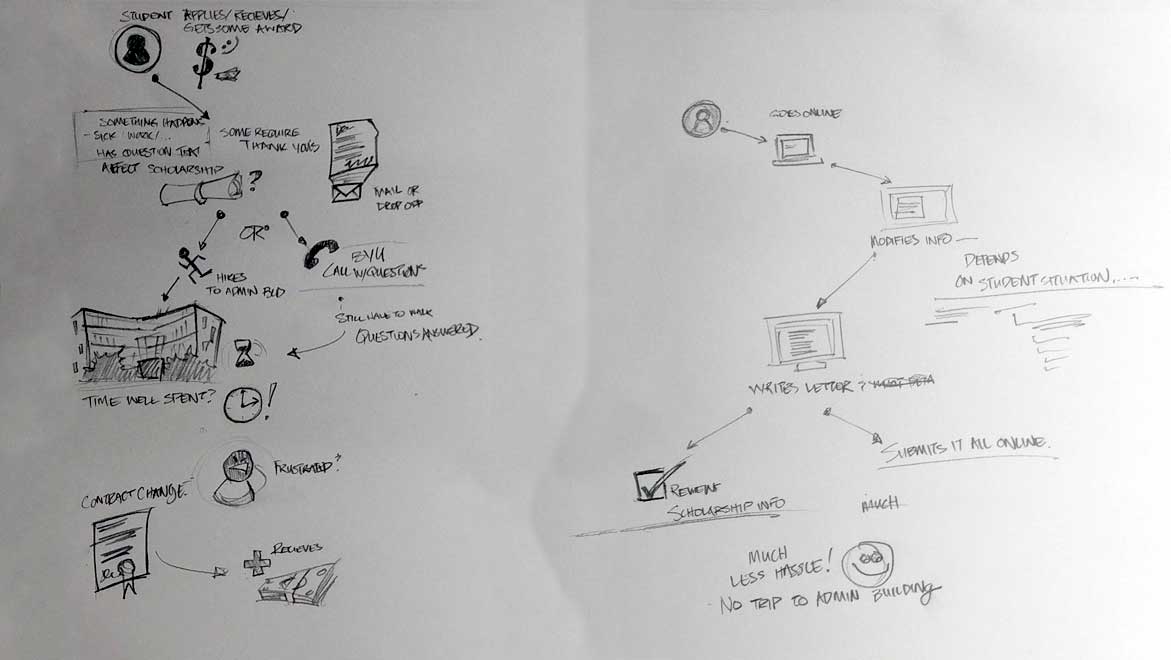 STUDENT APPLIES/RECIEVES/
GETS SOME AWARD
SOMETHING HAPPENS
- SICK / WORK /...
HAS QUESTION THAT
AFFECT SCHOLARSHIP
?
SOME REQUIRE
THANK YOU'S
MAIL OR
DROP OFF
OR
HIKES
TO ADMIN BLD
BYU
CALL W/QUESTIONS
STILL HAVE TO WALK
QUESTIONS ANSWERED.
TIME WELL SPENT?
!
FRUSTRATED?
CONTRACT CHANGE.
RECIEVES
GOES ONLINE
MODIFIES INFO
DEPENDS
ON STUDENT SITUATION.....
WRITES LETTER?
SUBMITS IT ALL ONLINE.
SCHOLARSHIP INFO
MUCH
MUCH
LESS HASSLE!
NO TRIP TO ADMIN BUILDING